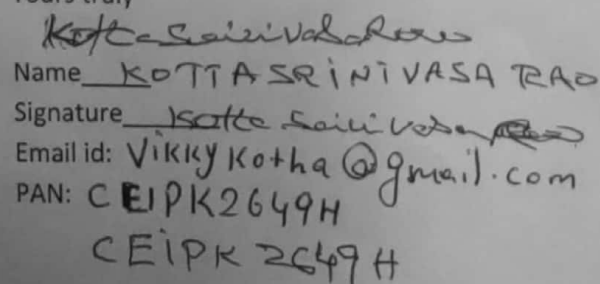 Yours truly
Kotta Srinivasa Rao
Name KOTTA SRINIVASA RAO
Signature Kotta Srinivasa Rao
Email id: Vikkykotha@gmail.com
PAN: CEIPK2649H
CEIPK2649H